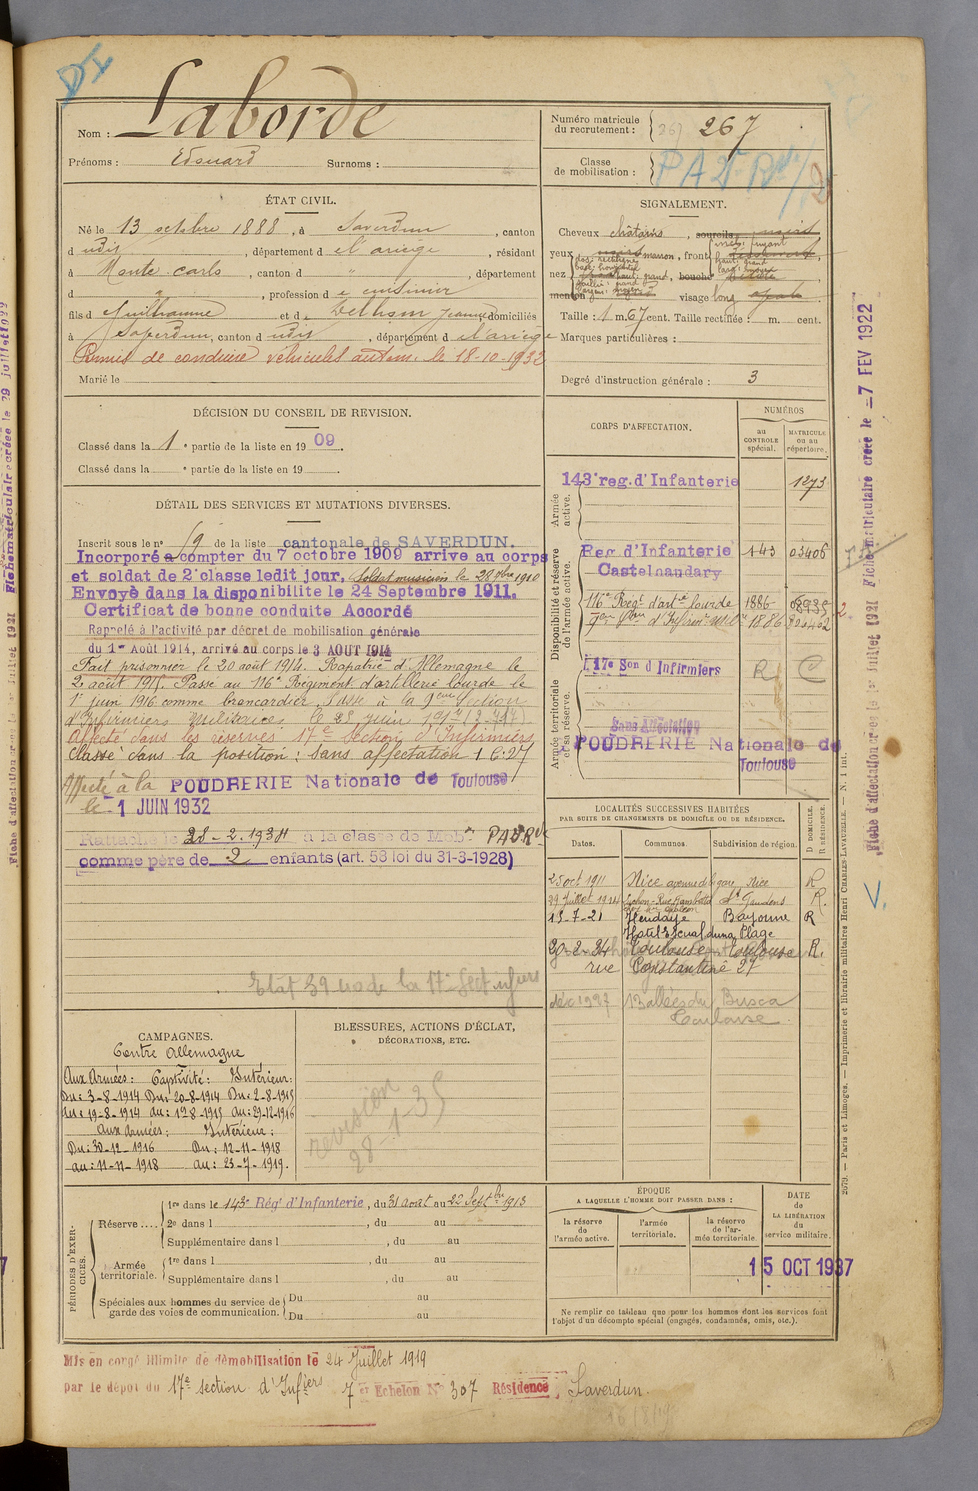 DI
Nom : Laborde
Prénoms : Edouard Surnoms :
Numéro matricule du recrutement : 267 267
Classe de mobilisation : PA 2
ÉTAT CIVIL.
Né le 13 octobre 1888, à Saverdun, canton
d udit, département d el ariège, résidant
à Monte carlo, canton d ", département
d ", profession d e cuisinier
fils d Guilhaume et d e Delhom Jeanne domiciliés
à Saverdun, canton d udit, département d el'ariège
Permis de conduire véhicules autom. le 18-10-1932
Marié le
SIGNALEMENT.
Cheveux châtains, sourcils noirs
yeux noirs marron, front
nez, bouche
menton visage long
Taille : 1 m. 67 cent. Taille rectifiée : m. cent.
Marques particulières :
Degré d'instruction générale : 3
DÉCISION DU CONSEIL DE REVISION.
Classé dans la 1e partie de la liste en 1909.
Classé dans la e partie de la liste en 19
DÉTAIL DES SERVICES ET MUTATIONS DIVERSES.
Inscrit sous le n° 19 de la liste cantonale de SAVERDUN.
Incorporé à compter du 7 octobre 1909 arrive au corps
et soldat de 2e classe ledit jour, Soldat musicien le 28 1910
Envoyé dans la disponibilite le 24 Septembre 1911.
Certificat de bonne conduite Accordé
Rappelé à l'activité par décret de mobilisation générale
du 1er Août 1914, arrivé au corps le 3 AOUT 1914
Fait prisonnier le 20 août 1914. Rapatrié d'Allemagne le
2 août 1915. Passé au 116e Régiment d'artillerie lourde le
1er juin 1916 comme brancardier. Passé à la 9eme Section
d'Infirmiers Militaires le 28 juin 1917
Affecté dans les réserves 17e Section d'Infirmiers
Classé dans la position : sans affectation 1.6.27
Affecté à la POUDRERIE Nationale de Toulouse
le 1 JUIN 1932
Rattaché le 28-2-1934 à la classe de Mobon
comme père de 2 enfants (art. 58 loi du 31-3-1928)
Etat 39 de la 17e Sect
CORPS D'AFFECTATION.
NUMÉROS
au CONTROLE spécial.
MATRICULE ou au répertoire.
Armée active.
143e reg. d'Infanterie 1273
Disponibilité et réserve de l'armée active.
Reg. d'Infanterie 143 03406
Castelnaudary
116e Regt d'artie lourde 1886
9eme d'Infirm. 1886
Armée territoriale et sa réserve.
17e Son d'Infirmiers R
Sans Affectation
POUDRERIE Nationale de
Toulouse
LOCALITÉS SUCCESSIVES HABITÉES
PAR SUITE DE CHANGEMENTS DE DOMICILE OU DE RÉSIDENCE.
D DOMICILE. R RÉSIDENCE.
Dates. Communes Subdivision de région.
25 oct 1911 Nice avenue de la gare Nice R
29 Juillet 1921 Luchon - Rue Gambetta St Gaudens R.
13-7-21 Hendaye Bayonne R
Hotel Eskualduna Plage
20-2-24 Toulouse Toulouse R.
rue Constantine 27
déc 1927 13 allées du Busca
Toulouse
CAMPAGNES.
Contre Allemagne
Aux Armées : Captivité : Intérieur :
Du : 3-8-1914 Du : 20-8-1914 Du : 2-8-1915
Au : 19-8-1914 Au : 1-8-1915 Au : 29-12-1916
Aux armées : Intérieur :
Du : 30-12-1916 Du : 12-11-1918
au : 11-11-1918 au : 23-7-1919.
BLESSURES, ACTIONS D'ÉCLAT, DÉCORATIONS, ETC.
revision
28-1-35
PÉRIODES D'EXERCICES.
Réserve.... 1re dans le 143e Régt d'Infanterie, du 31 aout au 22 Septbre 1913
2e dans l , du au
Supplémentaire dans l , du au
Armée territoriale. 1re dans l , du au
Supplémentaire dans l , du au
Spéciales aux hommes du service de garde des voies de communication. Du au
Du au
ÉPOQUE
A LAQUELLE L'HOMME DOIT PASSER DANS :
la réserve de l'armée active.
l'armée territoriale.
la réserve de l'armée territoriale.
DATE de LA LIBÉRATION du service militaire.
15 OCT 1937
Ne remplir ce tableau que pour les hommes dont les services font l'objet d'un décompte spécial (engagés, condamnés, omis, etc.).
Mis en congé illimité de démobilisation le 24 Juillet 1919
par le dépôt du 17e section d'Infiers 7e Echelon N° 307 Résidence Saverdun.
Fiche matriculaire créée le -7 FEV 1922
Fiche d'affectation créée le Juillet 1921
2679. — Paris et Limoges. — Imprimerie et librairie militaires Henri CHARLES-LAVAUZELLE. — N. 1 int.
V.
Fiche matriculaire créée le 29 juillet 1922
Fiche d'affectation créée le juillet 1921